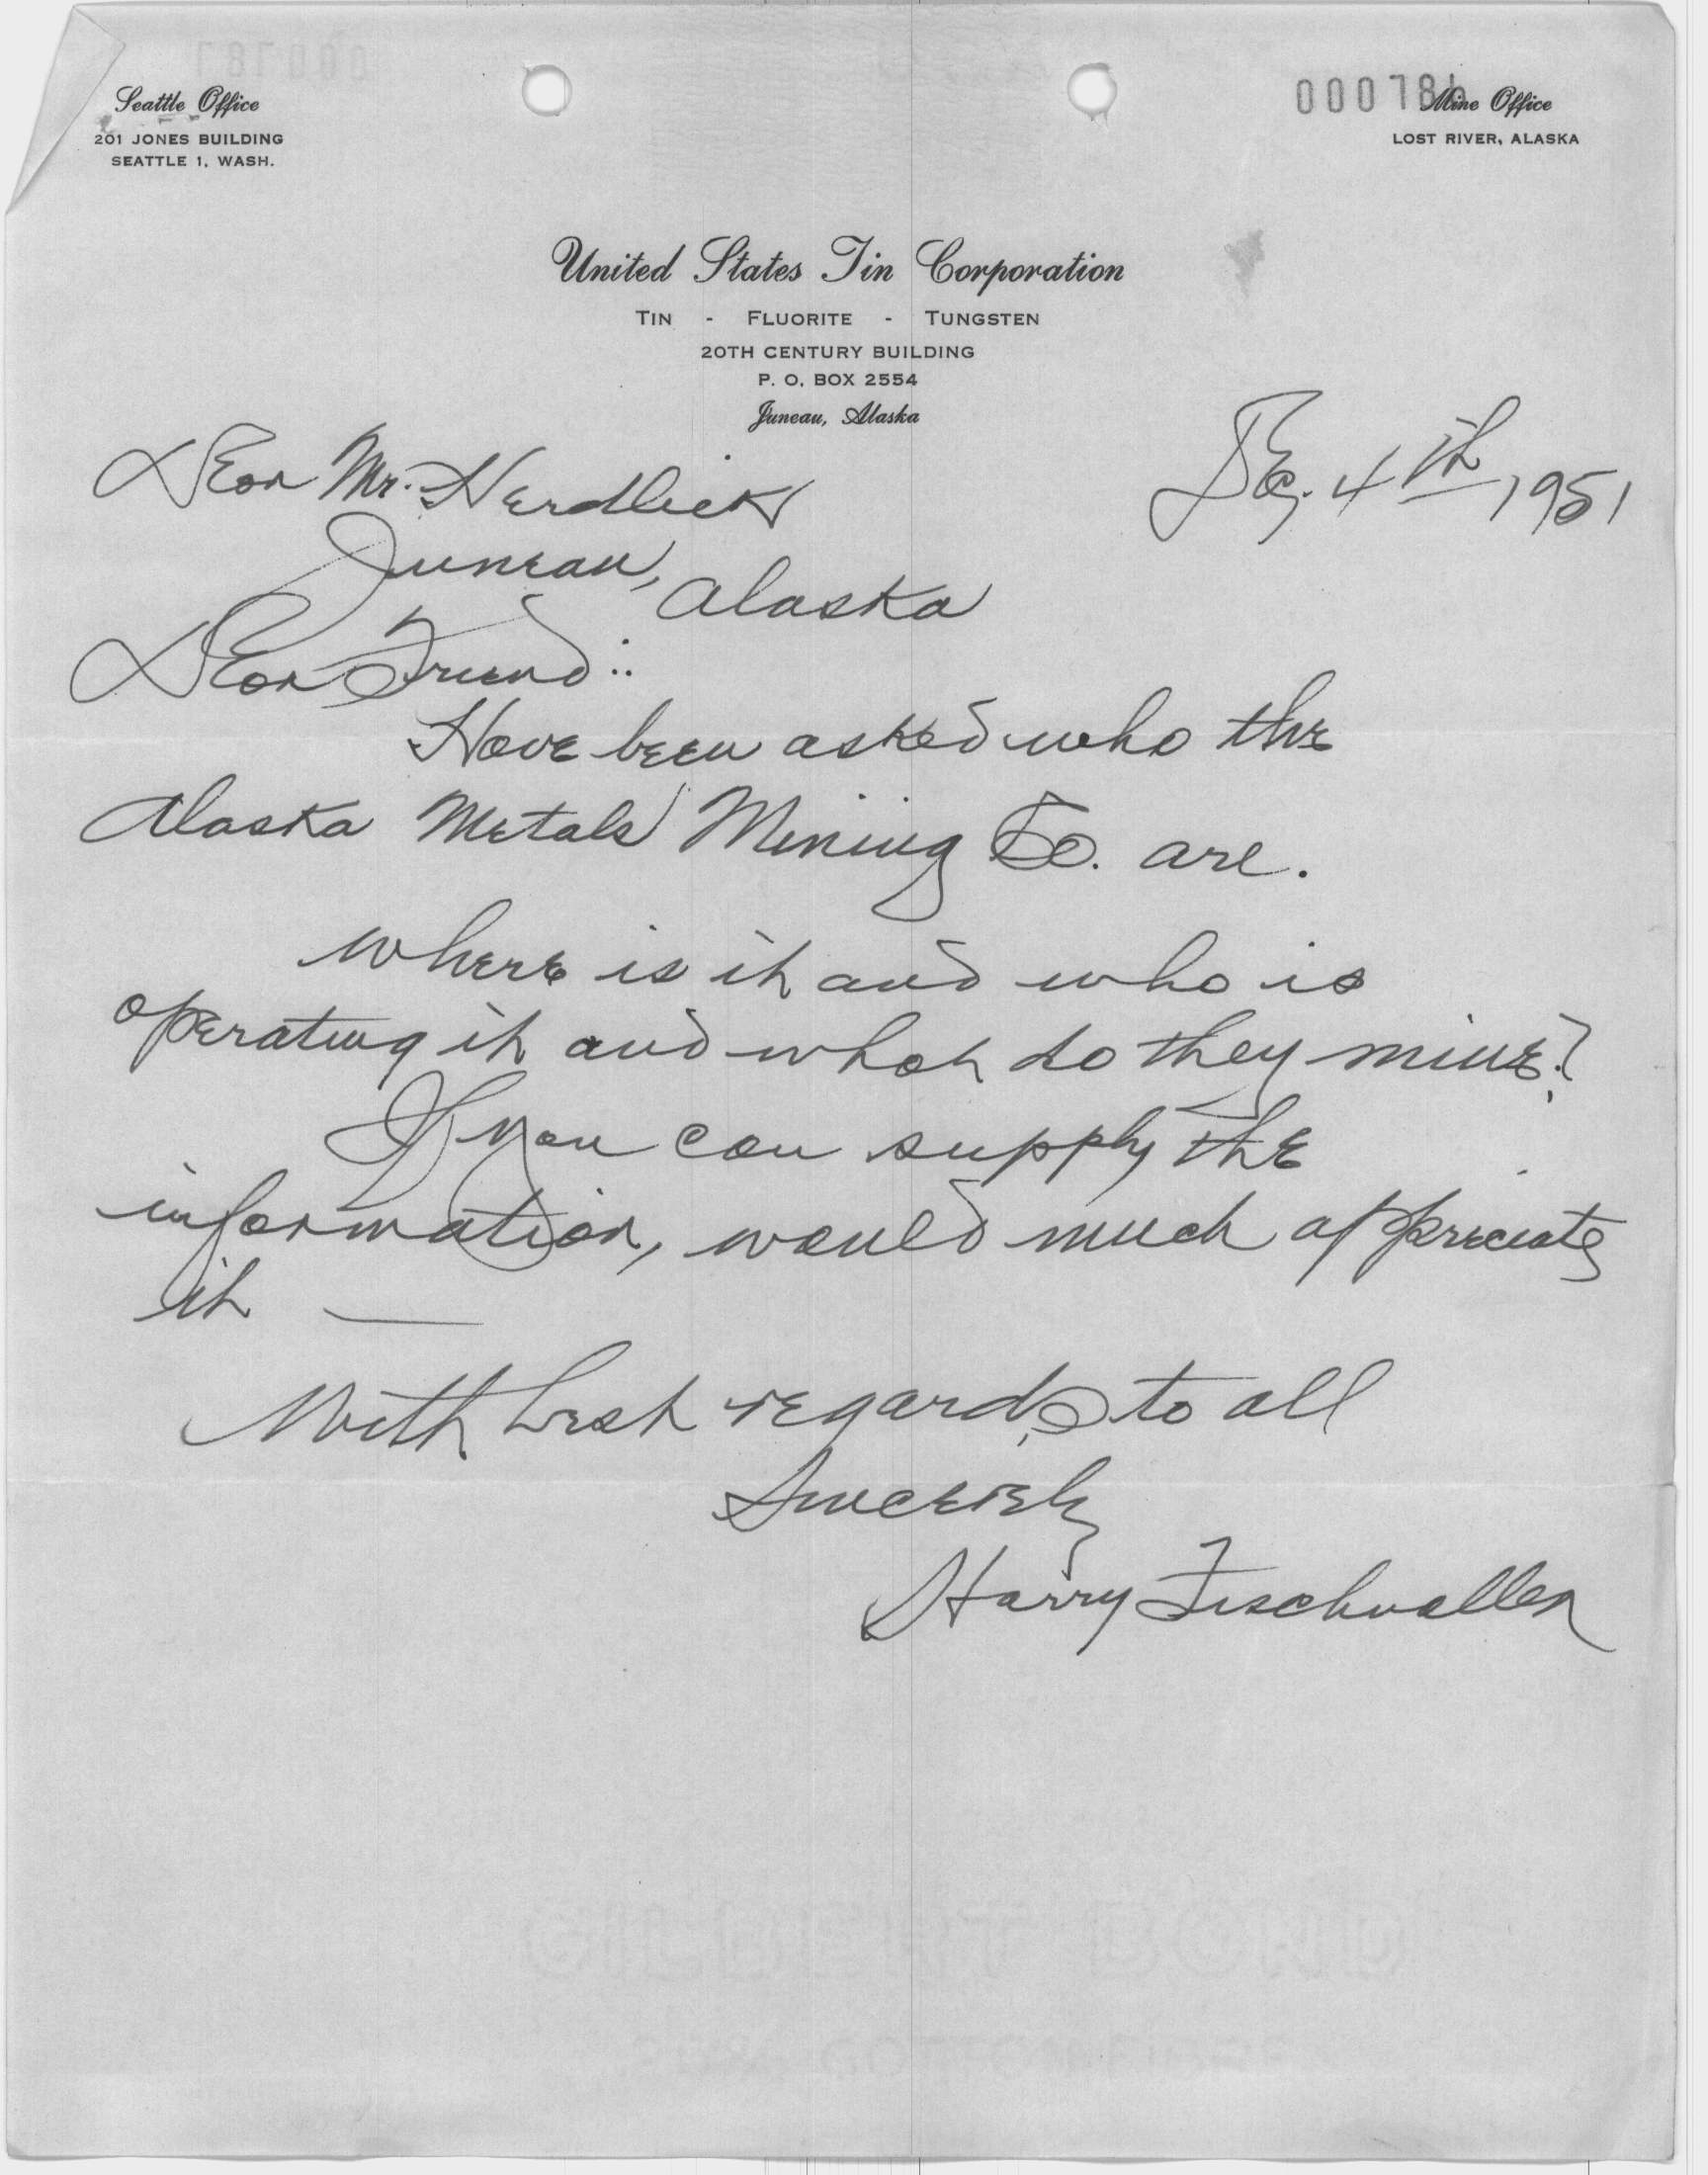 000786
Seattle Office
201 JONES BUILDING
SEATTLE 1, WASH.
Mine Office
LOST RIVER, ALASKA
United States Tin Corporation
TIN - FLUORITE - TUNGSTEN
20TH CENTURY BUILDING
P. O. BOX 2554
Juneau, Alaska
Dec. 4th, 1951
Dear Mr. Herdlick
Juneau, Alaska
Dear Friend:
Have been asked who the
Alaska Metals Mining Co. are.
Where is it and who is
operating it and what do they mine?
If you can supply the
information, would much appreciate
it —
With best regards to all
Sincerely
Harry Fischvaller